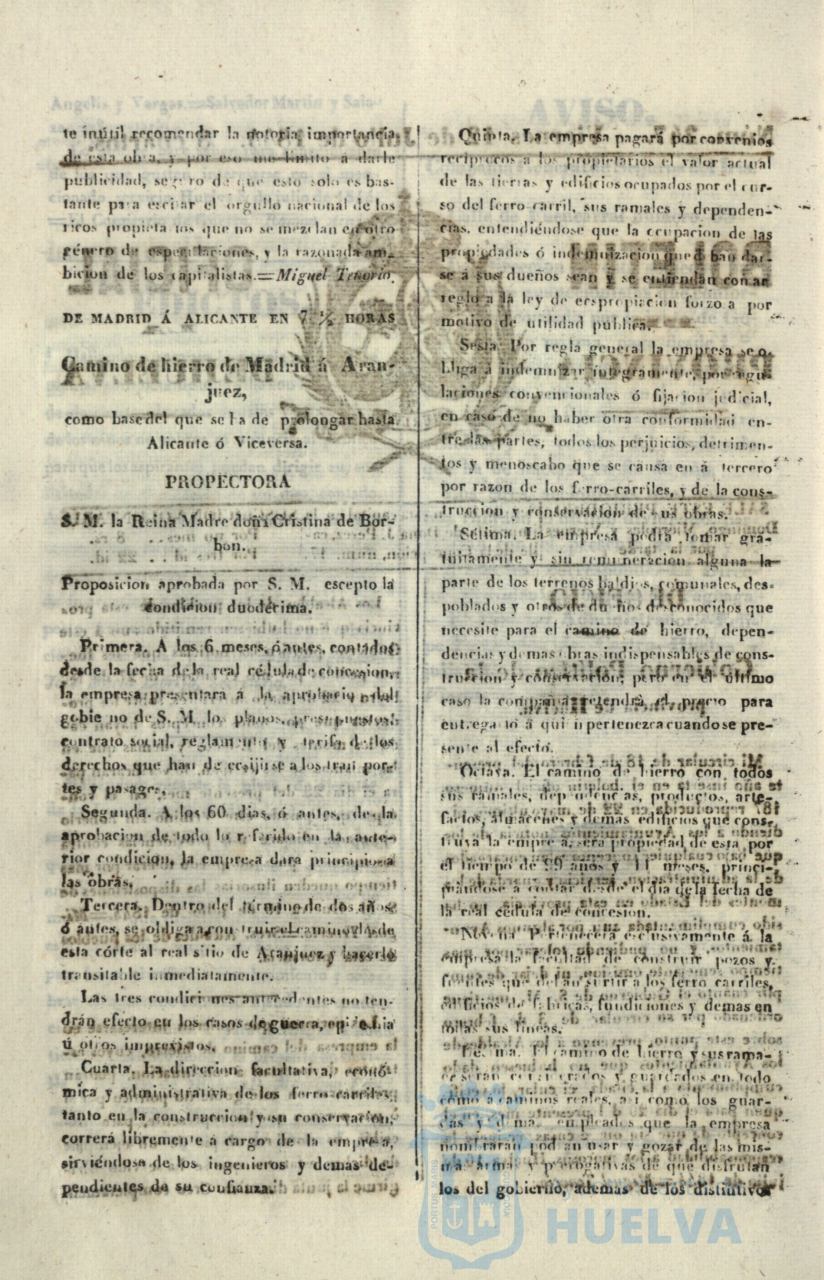 te inútil recomendar la notoria importancia
de esta obra, y por eso me limito á darle
publicidad, seguro de que esto solo es bas-
tante para escitar el orgullo nacional de los
ricos propietarios que no se mezclan en otro
género de especulaciones, y la razonada am-
bicion de los capitalistas.=Miguel Tenorio.
DE MADRID Á ALICANTE EN 7 ½ HORAS
Camino de hierro de Madrid á Aran-
juez,
como base del que se ha de prolongar hasta
Alicante ó Viceversa.
PROPECTORA
S. M. la Reina Madre doña Cristina de Bor-
bon.
Proposicion aprobada por S. M. escepto la
condicion duodécima.
Primera. Á los 6 meses, ó antes, contados
desde la fecha de la real cédula de concesion,
la empresa presentará á la aprobacion del
gobierno de S. M. los planos, presupuestos,
contrato social, reglamentos y tarifa de los
derechos que han de ecsijirse a los trasportes
tes y pasages.
Segunda. A los 60 dias, ó antes, de la
aprobacion de todo lo referido en la ante-
rior condicion, la empresa dara principio a
las obras.
Tercera. Dentro del término de dos años
ó antes, se obliga a construir el camino desde
esta córte al real sitio de Aranjuez y hacerlo
transitable inmediatamente.
Las tres condiciones antecedentes no ten-
drán efecto en los casos de guerra, epidemia
ú otros imprevistos.
Cuarta. La direccion facultativa, econó
mica y administrativa de los ferro-carriles,
tanto en la construccion y su conservacion,
correrá libremente a cargo de la empresa,
sirviéndose de los ingenieros y demas de-
pendientes de su confianza.
Quinta. La empresa pagará por convenios
reciprocos a los propietarios el valor actual
de las tierras y edificios ocupados por el cur-
so del ferro-carril, sus ramales y dependen-
cias, entendiéndose que la ocupacion de las
propiedades ó indemnizacion que han dar-
se á sus dueños sean y se entiendan con ar
reglo a la ley de espropiacion forzosa por
motivo de utilidad publica.
Sesta. Por regla general la empresa se o-
bliga á indemnizar integramente, por regu
laciones convencionales ó fijacion judicial,
en caso de no haber otra conformidad en-
tre las partes, todos los perjuicios, detrimen-
tos y menoscabo que se causa en á tercero
por razon de los ferro-carriles, y de la cons-
truccion y conservacion de sus obras.
Sétima. La empresa podrá tomar gra-
tuitamente y sin remuneracion alguna la
parte de los terrenos baldios, comunales, des-
poblados y otros de dueños desconocidos que
necesite para el camino de hierro, depen-
dencias y demas obras indispensables de cons-
truccion y conservacion; pero en el último
caso la compañia retendrá el precio para
entregarlo á quien pertenezca cuando se pre-
sente al efecto.
Octava. El camino de hierro con todos
sus ramales, dependencias, productos, arte-
factos, almacenes y demas edificios que cons-
truya la empresa, será propiedad de esta por
el tiempo de 99 años y 11 meses, princi-
piandose á contar desde el dia de la fecha de
la real cédula de concesion.
Novena. Pertenecerá esclusivamente á la
empresa la facultad de construir pozos y
fuentes que deban surtir a los ferro carriles,
edificios de fabricas, fundiciones y demas en
todas sus lineas.
Décima. El camino de hierro y sus rama-
les serán considerados y guardados en todo
como caminos reales, asi como los guar-
das y demas empleados que la empresa
nombrarán podrán usar y gozar de las mis-
mas armas y prerogativas de que disfrutan
los del gobierno, ademas de los distintivos
HUELVA